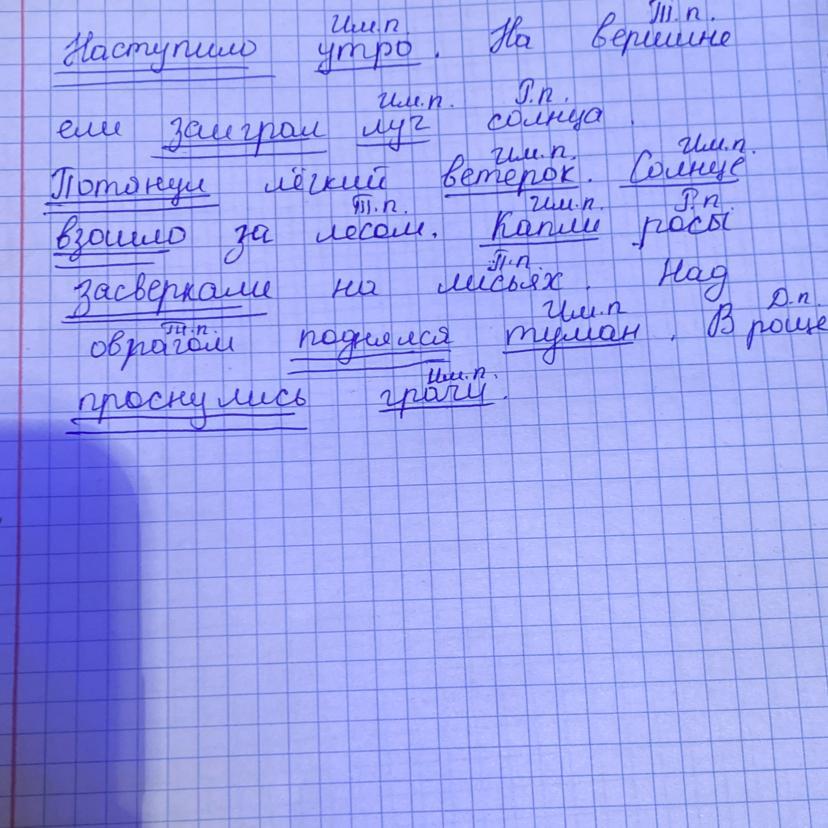 Им.п. Т.п.
Наступило утро. На вершине
Им.п. Р.п.
ели заиграл луч солнца.
Им.п. Им.п.
Потонул лёгкий ветерок. Солнце
Т.п. Им.п. Р.п.
взошло за лесом. Капли росы
П.п.
засверкали на лисьях. Над
Т.п. Им.п Д.п.
оврагом поднялся туман. В роще
Им.п.
проснулись грачи.